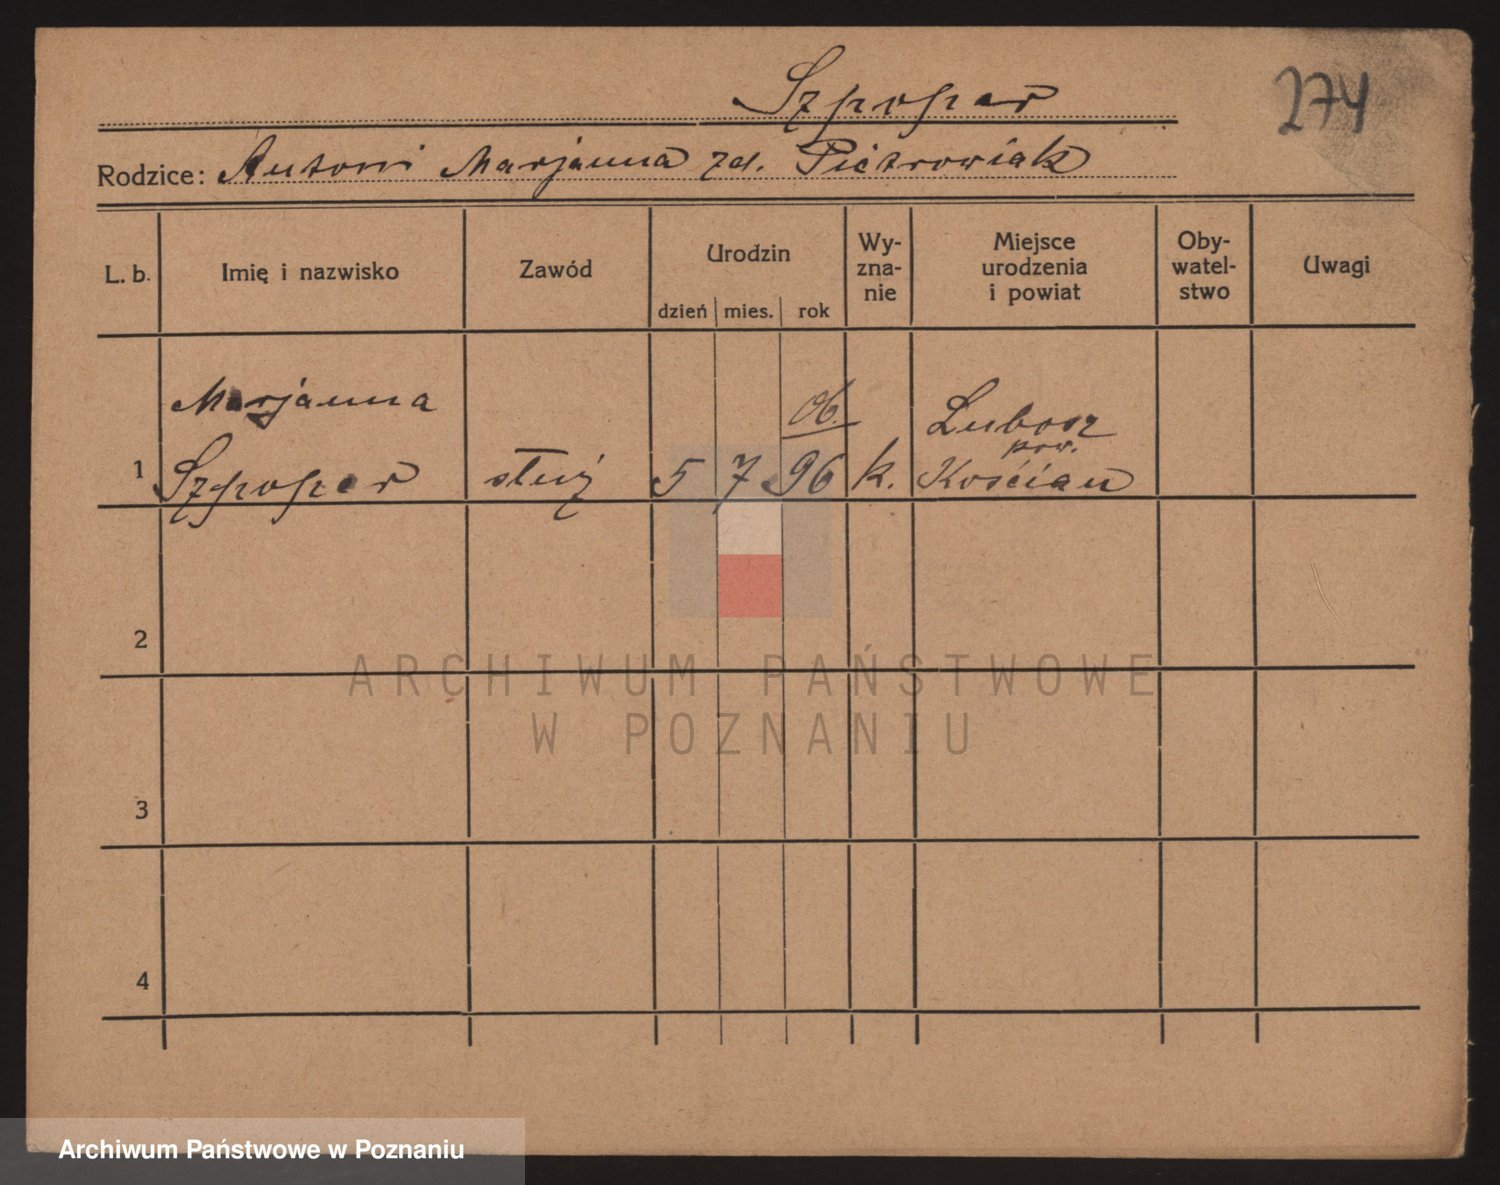 Szpoper
274
Rodzice: Antoni Marjanna zd. Pietrowiak
L. b.
Imię i nazwisko
Zawód
Urodzin
dzień
mies.
rok
Wy-
zna-
nie
Miejsce
urodzenia
i powiat
Oby-
watel-
stwo
Uwagi
1
Marjanna
Szpoper
służ
5
7
96
k.
Lubosz
pow.
Kościan
2
3
4
ARCHIWUM PAŃSTWOWE
W POZNANIU
Archiwum Państwowe w Poznaniu